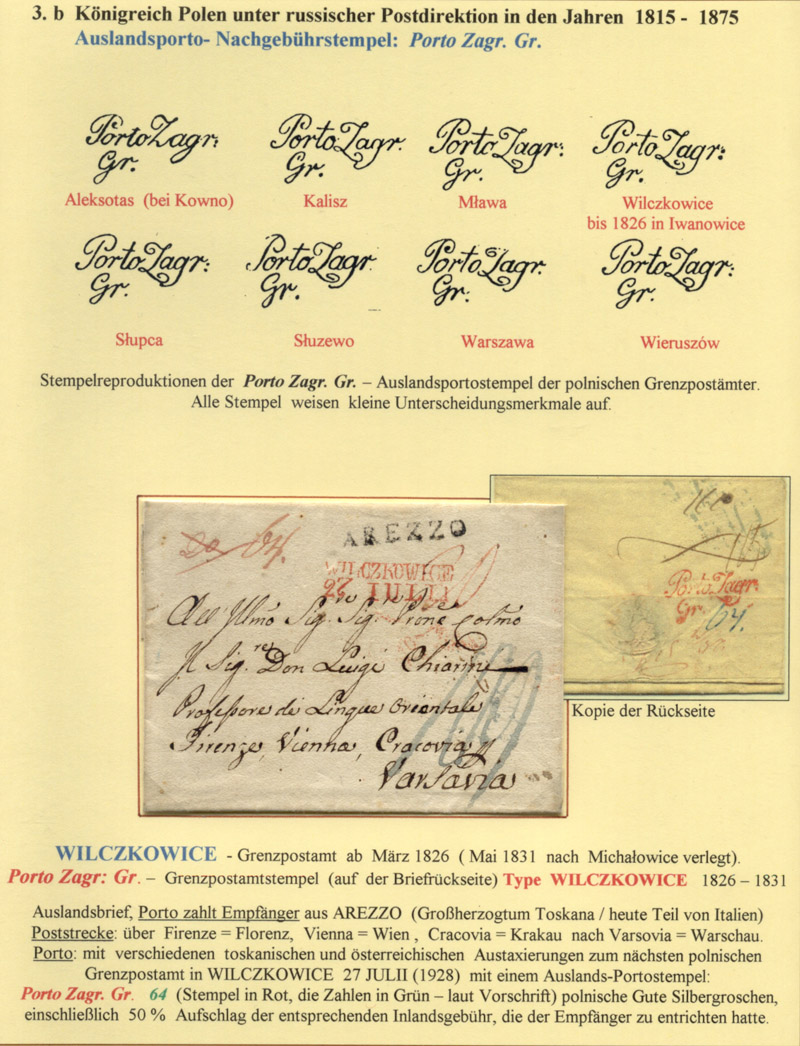 3. b Königreich Polen unter russischer Postdirektion in den Jahren 1815 - 1875
Auslandsporto- Nachgebührstempel: Porto Zagr. Gr.
Porto Zagr:
Gr.
Porto Zagr.
Gr.
Porto Zagr:
Gr.
Porto Zagr:
Gr.
Aleksotas (bei Kowno)
Kalisz
Mława
Wilczkowice
bis 1826 in Iwanowice
Porto Zagr:
Gr.
Porto Zagr
Gr.
Porto Zagr.
Gr:
Porto Zagr:
Gr.
Słupca
Słuzewo
Warszawa
Wieruszów
Stempelreproduktionen der Porto Zagr. Gr. – Auslandsportostempel der polnischen Grenzpostämter.
Alle Stempel weisen kleine Unterscheidungsmerkmale auf.
20 64.
AREZZO
WILCZKOWICE
27 IULII
All Illmo Sig. Sig. Prone Colmo
Il Sig.re Don Luigi Chiarini
Professore di Lingue Orientale
Firenze, Vienna, Cracovia
Varsavia
Porto Zagr.
Gr. 64.
Kopie der Rückseite
WILCZKOWICE - Grenzpostamt ab März 1826 ( Mai 1831 nach Michałowice verlegt).
Porto Zagr: Gr. – Grenzpostamtstempel (auf der Briefrückseite) Type WILCZKOWICE 1826 – 1831
Auslandsbrief, Porto zahlt Empfänger aus AREZZO (Großherzogtum Toskana / heute Teil von Italien)
Poststrecke: über Firenze = Florenz, Vienna = Wien , Cracovia = Krakau nach Varsovia = Warschau.
Porto: mit verschiedenen toskanischen und österreichischen Austaxierungen zum nächsten polnischen
Grenzpostamt in WILCZKOWICE 27 JULII (1928) mit einem Auslands-Portostempel:
Porto Zagr. Gr. 64 (Stempel in Rot, die Zahlen in Grün – laut Vorschrift) polnische Gute Silbergroschen,
einschließlich 50 % Aufschlag der entsprechenden Inlandsgebühr, die der Empfänger zu entrichten hatte.